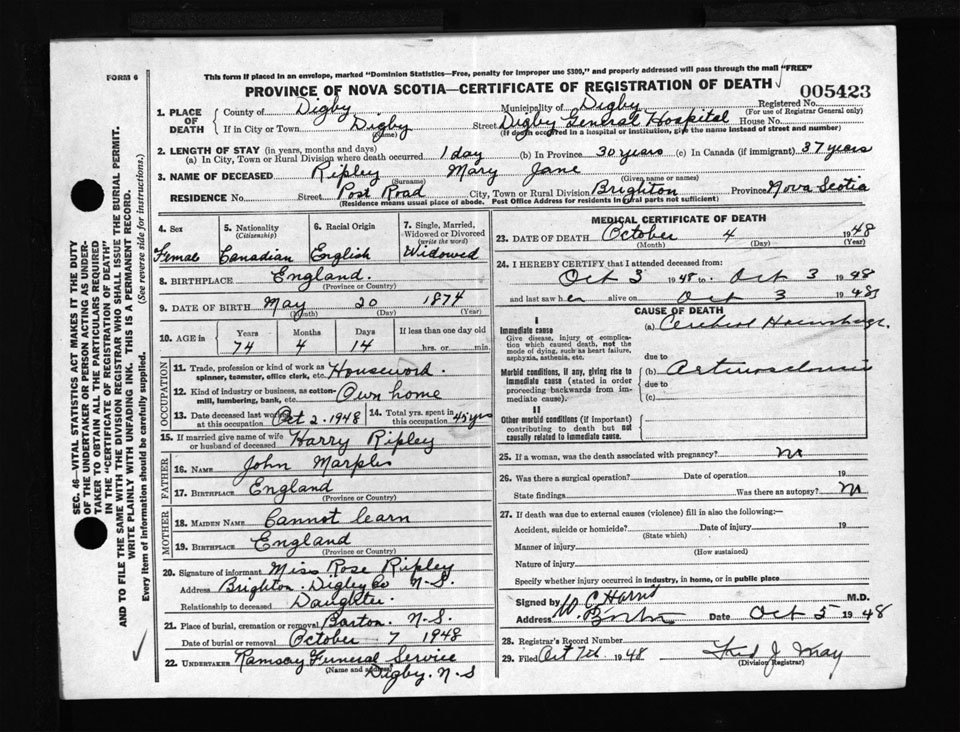 FORM 6
This form if placed in an envelope, marked "Dominion Statistics—Free, penalty for improper use $300," and properly addressed will pass through the mail "FREE"
PROVINCE OF NOVA SCOTIA—CERTIFICATE OF REGISTRATION OF DEATH
005423
1. PLACE OF DEATH
County of Digby Municipality of Digby Registered No.
(For use of Registrar General only)
If in City or Town Digby Street Digby General Hospital House No.
(Name) (If death occurred in a hospital or institution, give the name instead of street and number)
2. LENGTH OF STAY (in years, months and days)
(a) In City, Town or Rural Division where death occurred 1 day (b) In Province 30 years (c) In Canada (if immigrant) 37 years
3. NAME OF DECEASED Ripley Mary Jane
(Surname) (Given name or names)
RESIDENCE No. Street Post Road City, Town or Rural Division Brighton Province Nova Scotia
(Residence means usual place of abode. Post Office Address for residents in rural parts not sufficient)
4. Sex 5. Nationality (Citizenship) 6. Racial Origin 7. Single, Married, Widowed or Divorced (write the word)
Female Canadian English Widowed
8. BIRTHPLACE England.
(Province or Country)
9. DATE OF BIRTH May 20 1874
(Month) (Day) (Year)
10. AGE in Years Months Days If less than one day old
74 4 14 hrs. or min.
OCCUPATION
11. Trade, profession or kind of work as spinner, teamster, office clerk, etc. Housework.
12. Kind of industry or business, as cotton-mill, lumbering, bank, etc. Own home
13. Date deceased last worked at this occupation Oct 2. 1948 14. Total yrs. spent in this occupation 45 yrs
15. If married give name of wife or husband of deceased Harry Ripley
FATHER
16. NAME John Marples
17. BIRTHPLACE England
(Province or Country)
MOTHER
18. MAIDEN NAME Cannot learn
19. BIRTHPLACE England
(Province or Country)
20. Signature of informant Miss Rose Ripley
Address Brighton. Digby Co N.S.
Relationship to deceased Daughter.
21. Place of burial, cremation or removal Barton. N.S.
Date of burial or removal October 7 1948
22. UNDERTAKER Ramsay Funeral Service
(Name and address) Digby. N.S
MEDICAL CERTIFICATE OF DEATH
23. DATE OF DEATH October 4 1948
(Month) (Day) (Year)
24. I HEREBY CERTIFY that I attended deceased from:
Oct 3 1948 to Oct 3 1948
and last saw her alive on Oct 3 1948
CAUSE OF DEATH
I
Immediate cause (a) Cerebral Haemorhage.
Give disease, injury or complication which caused death, not the mode of dying, such as heart failure, asphyxia, asthenia, etc.
due to
Morbid conditions, if any, giving rise to immediate cause (stated in order proceeding backwards from immediate cause).
(b) Arteriosclerosis
due to
(c)
II
Other morbid conditions (if important) contributing to death but not causally related to immediate cause.
25. If a woman, was the death associated with pregnancy? No
26. Was there a surgical operation? Date of operation 19
State findings Was there an autopsy? No
27. If death was due to external causes (violence) fill in also the following:—
Accident, suicide or homicide? Date of injury 19
(State which)
Manner of injury
(How sustained)
Nature of injury
Specify whether injury occurred in industry, in home, or in public place
Signed by W C Harris M.D.
Address Barton Date Oct 5 1948
28. Registrar's Record Number
29. Filed Oct 7th 1948 Fred J May
(Division Registrar)
SEC. 46—VITAL STATISTICS ACT MAKES IT THE DUTY
OF THE UNDERTAKER OR PERSON ACTING AS UNDER-
TAKER TO OBTAIN ALL THE PARTICULARS REQUIRED
IN THE "CERTIFICATE OF REGISTRATION OF DEATH"
AND TO FILE THE SAME WITH THE DIVISION REGISTRAR WHO SHALL ISSUE THE BURIAL PERMIT.
WRITE PLAINLY WITH UNFADING INK. THIS IS A PERMANENT RECORD.
Every item of information should be carefully supplied. (See reverse side for instructions.)